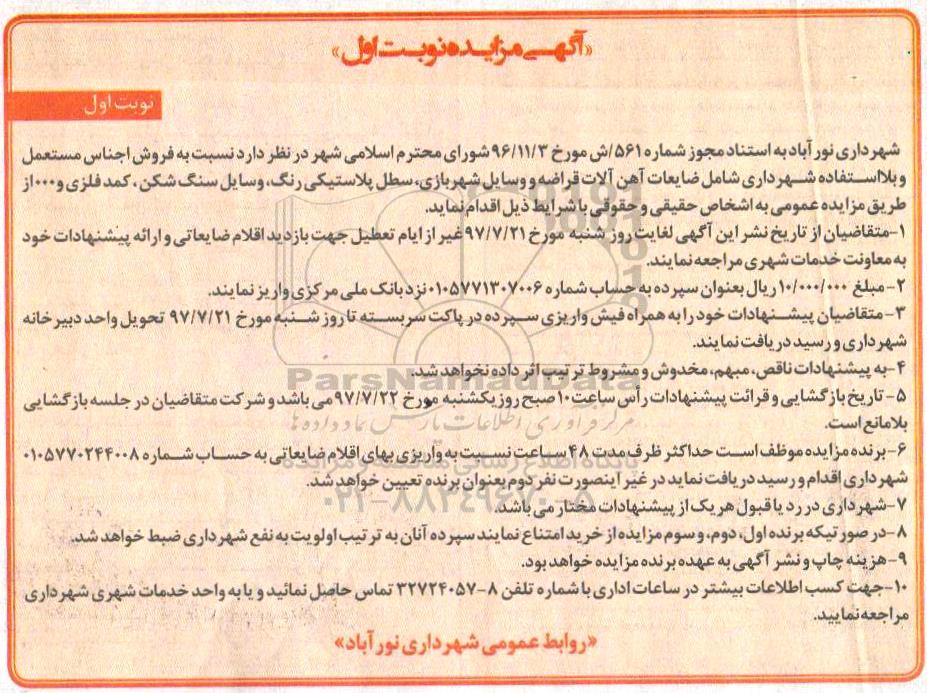 «آگهی مزایده نوبت اول»
نوبت اول
شهرداری نورآباد به استناد مجوز شماره ۵۶۱/ش مورخ ۹۶/۱۱/۳ شورای محترم اسلامی شهر در نظر دارد نسبت به فروش اجناس مستعمل
و بلااستفاده شهرداری شامل ضایعات آهن آلات قراضه و وسایل شهربازی، سطل پلاستیکی رنگ، وسایل سنگ شکن، کمد فلزی و ۰۰۰ از
طریق مزایده عمومی به اشخاص حقیقی و حقوقی با شرایط ذیل اقدام نماید.
۱-متقاضیان از تاریخ نشر این آگهی لغایت روز شنبه مورخ ۹۷/۷/۲۱ غیر از ایام تعطیل جهت بازدید اقلام ضایعاتی و ارائه پیشنهادات خود
به معاونت خدمات شهری مراجعه نمایند.
۲-مبلغ ۱۰/۰۰۰/۰۰۰ ریال بعنوان سپرده به حساب شماره ۰۱۰۵۷۷۱۳۰۷۰۰۶ نزد بانک ملی مرکزی واریز نمایند.
۳-متقاضیان پیشنهادات خود را به همراه فیش واریزی سپرده در پاکت سربسته تا روز شنبه مورخ ۹۷/۷/۲۱ تحویل واحد دبیرخانه
شهرداری و رسید دریافت نمایند.
۴-به پیشنهادات ناقص، مبهم، مخدوش و مشروط ترتیب اثر داده نخواهد شد.
۵-تاریخ بازگشایی و قرائت پیشنهادات رأس ساعت ۱۰ صبح روز یکشنبه مورخ ۹۷/۷/۲۲ می باشد و شرکت متقاضیان در جلسه بازگشایی
بلامانع است.
۶-برنده مزایده موظف است حداکثر ظرف مدت ۴۸ ساعت نسبت به واریزی بهای اقلام ضایعاتی به حساب شماره ۰۱۰۵۷۷۰۲۴۴۰۰۸
شهرداری اقدام و رسید دریافت نماید در غیر اینصورت نفر دوم بعنوان برنده تعیین خواهد شد.
۷-شهرداری در رد یا قبول هر یک از پیشنهادات مختار می باشد.
۸-در صورتیکه برنده اول، دوم، و سوم مزایده از خرید امتناع نمایند سپرده آنان به ترتیب اولویت به نفع شهرداری ضبط خواهد شد.
۹-هزینه چاپ و نشر آگهی به عهده برنده مزایده خواهد بود.
۱۰-جهت کسب اطلاعات بیشتر در ساعات اداری با شماره تلفن ۸-۳۲۷۲۴۰۵۷ تماس حاصل نمائید و یا به واحد خدمات شهری شهرداری
مراجعه نمایید.
«روابط عمومی شهرداری نورآباد»
ParsNamadData
مرکز فرآوری اطلاعات پارس نماد داده ها
پایگاه اطلاع رسانی مناقصه و مزایده
۰۲۱-۸۸۳۴۹۶۷۰-۵